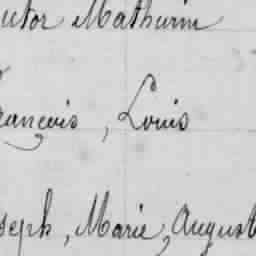 ictor Mathurin
rançois, Louis
seph, Marie, August